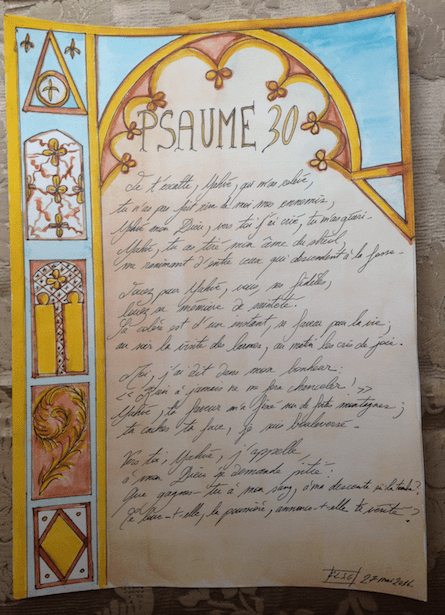 PSAUME 30
Je t'exalte, Yahvé, qui m'as relevé,
tu n'as pas fait rire de moi mes ennemis,
Yahvé mon Dieu, vers toi j'ai crié, tu m'as guéri.
Yahvé, tu as tiré mon âme du shéol,
me ranimant d'entre ceux qui descendent à la fosse.
Jouez pour Yahvé, vous, ses fidèles,
louez sa mémoire de sainteté.
Sa colère est d'un instant, sa faveur pour la vie;
au soir la visite des larmes, au matin les cris de joie.
Moi, j'ai dit dans mon bonheur:
<< Rien à jamais ne me fera chanceler! >>
Yahvé, ta faveur m'a fixé sur de fortes montagnes;
tu caches ta face, je suis bouleversé.
Vers toi, Yahvé, j'appelle,
à mon Dieu je demande pitié:
Que gagnes-tu à mon sang, à ma descente en la tombe?
Te loue-t-elle, la poussière, annonce-t-elle ta vérité?
27 mai